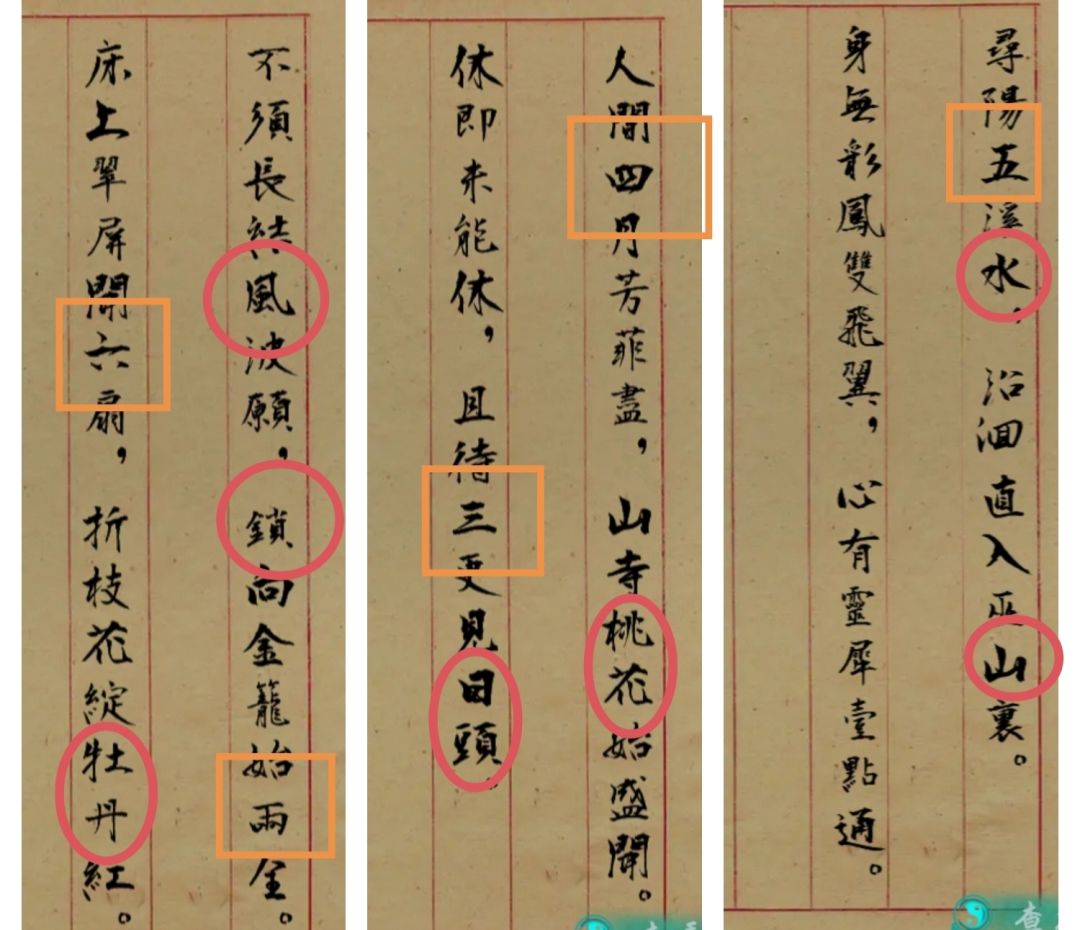 尋陽五溪水,沿洄直入巫山裏。
身無彩鳳雙飛翼,心有靈犀壹點通。
人間四月芳菲盡,山寺桃花始盛開。
休即未能休,且待三更見日頭。
不須長結風波願,鎖向金籠始兩全。
床上翠屏開六扇,折枝花綻牡丹紅。
查